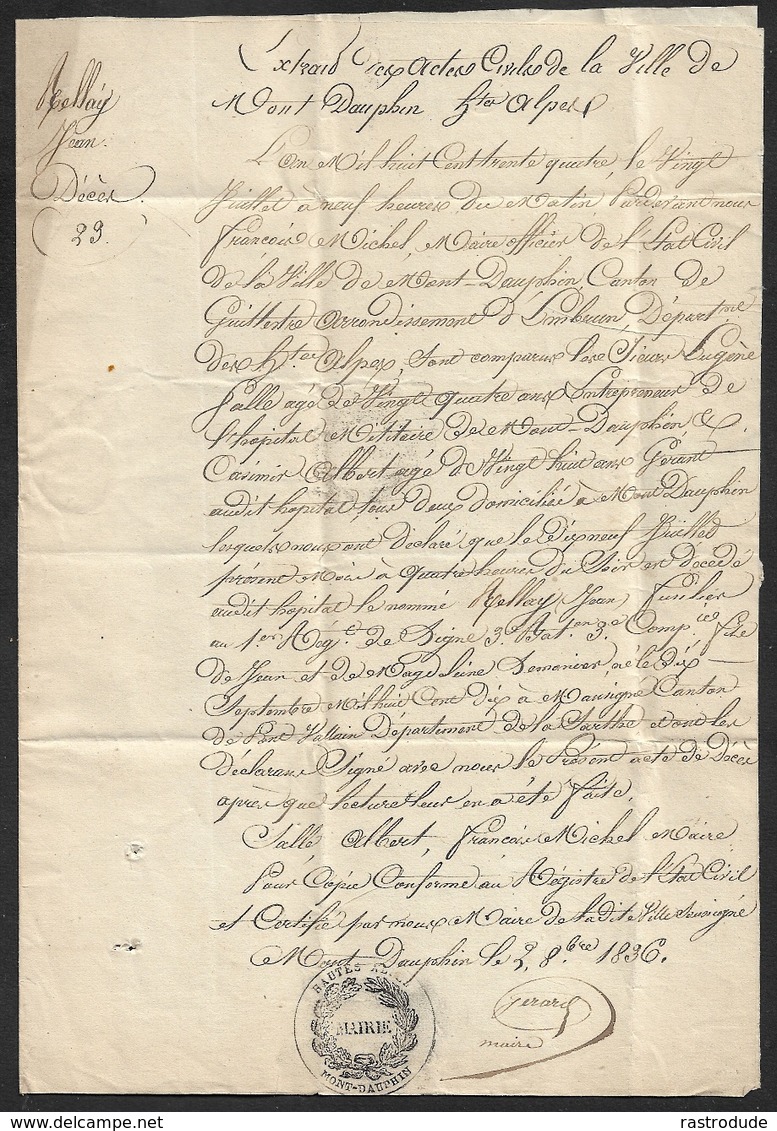 Mellay
Jean.
Décès.
29.
Extrait des Actes Civils de la Ville de
Mont Dauphin Htes Alpes
L'an Mil huit Cent trente quatre, le Vingt
Juillet à neuf heures du Matin, Pardevant nous
François Michel, Maire officier de l'Etat Civil
de la Ville de Mont-Dauphin, Canton de
Guillestre arrondissement d'Embrun, Départme
des Htes Alpes, sont comparus les Sieurs Eugène
Sallé agé de Vingt quatre ans Entrepreneur de
l'hôpital Militaire de Mont-Dauphin &
Casimir Albert agé de Vingt huit ans Gérant
audit hopital, tous deux domiciliés à Mont Dauphin
lesquels nous ont déclaré que le dix neuf Juillet
présent Mois à quatre heures du Soir est décédé
audit hopital le nommé Mellay (Jean) Fusilier
au 1er Régt de Ligne 3e Baton 3e Compie fils
de Jean et de Magdeleine né le dix
Septembre Mil huit Cent dix à Mansigné Canton
de Pont Vallain Département de la Sarthe et ont les
déclarans Signé avec nous le Présent acte de Décès
après que lecture leur en a été faite,
Sallé Albert, François Michel Maire
Pour Copie Conforme au Régistre de l'Etat Civil
et Certifié par nous Maire de ladite Ville Soussigné
Mont Dauphin le 2, 8bre 1836.
Gerard
maire
HAUTES ALPES
MAIRIE
MONT-DAUPHIN
www.delcampe.net
rastrodude